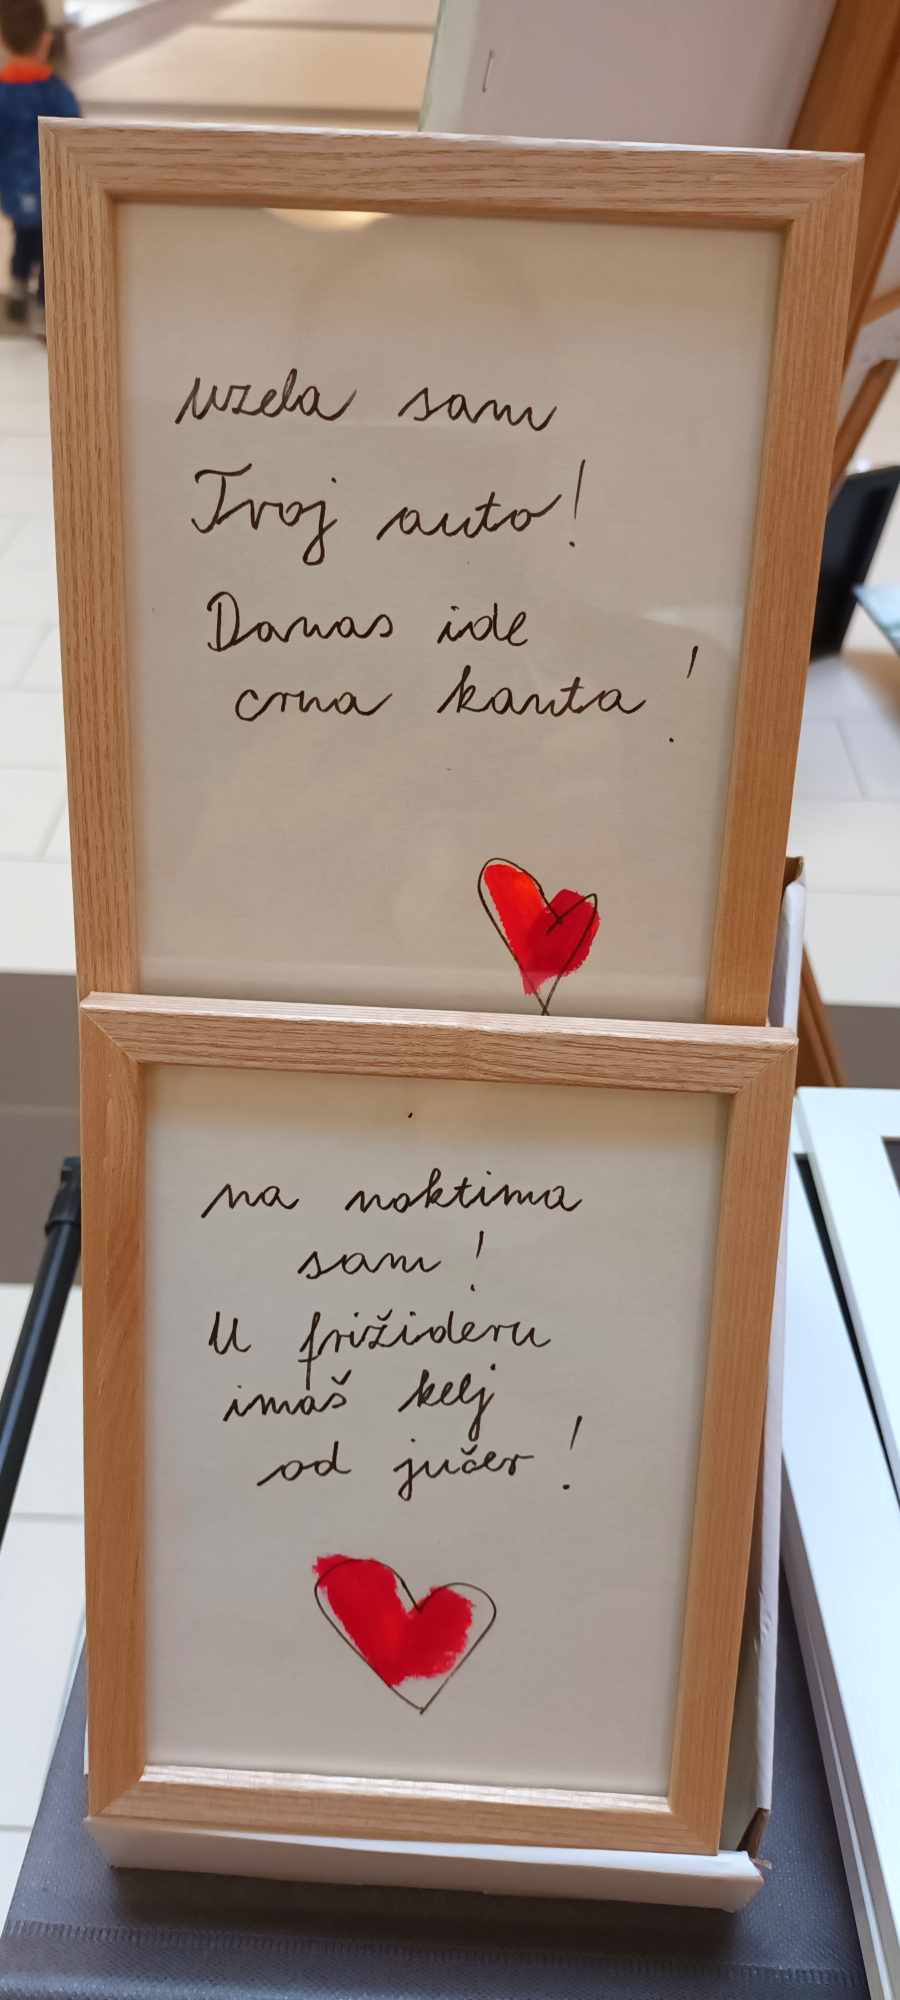 uzela sam
Tvoj auto!
Danas ide
crna kanta!
na noktima
sam!
U frižideru
imaš kelj
od jučer!